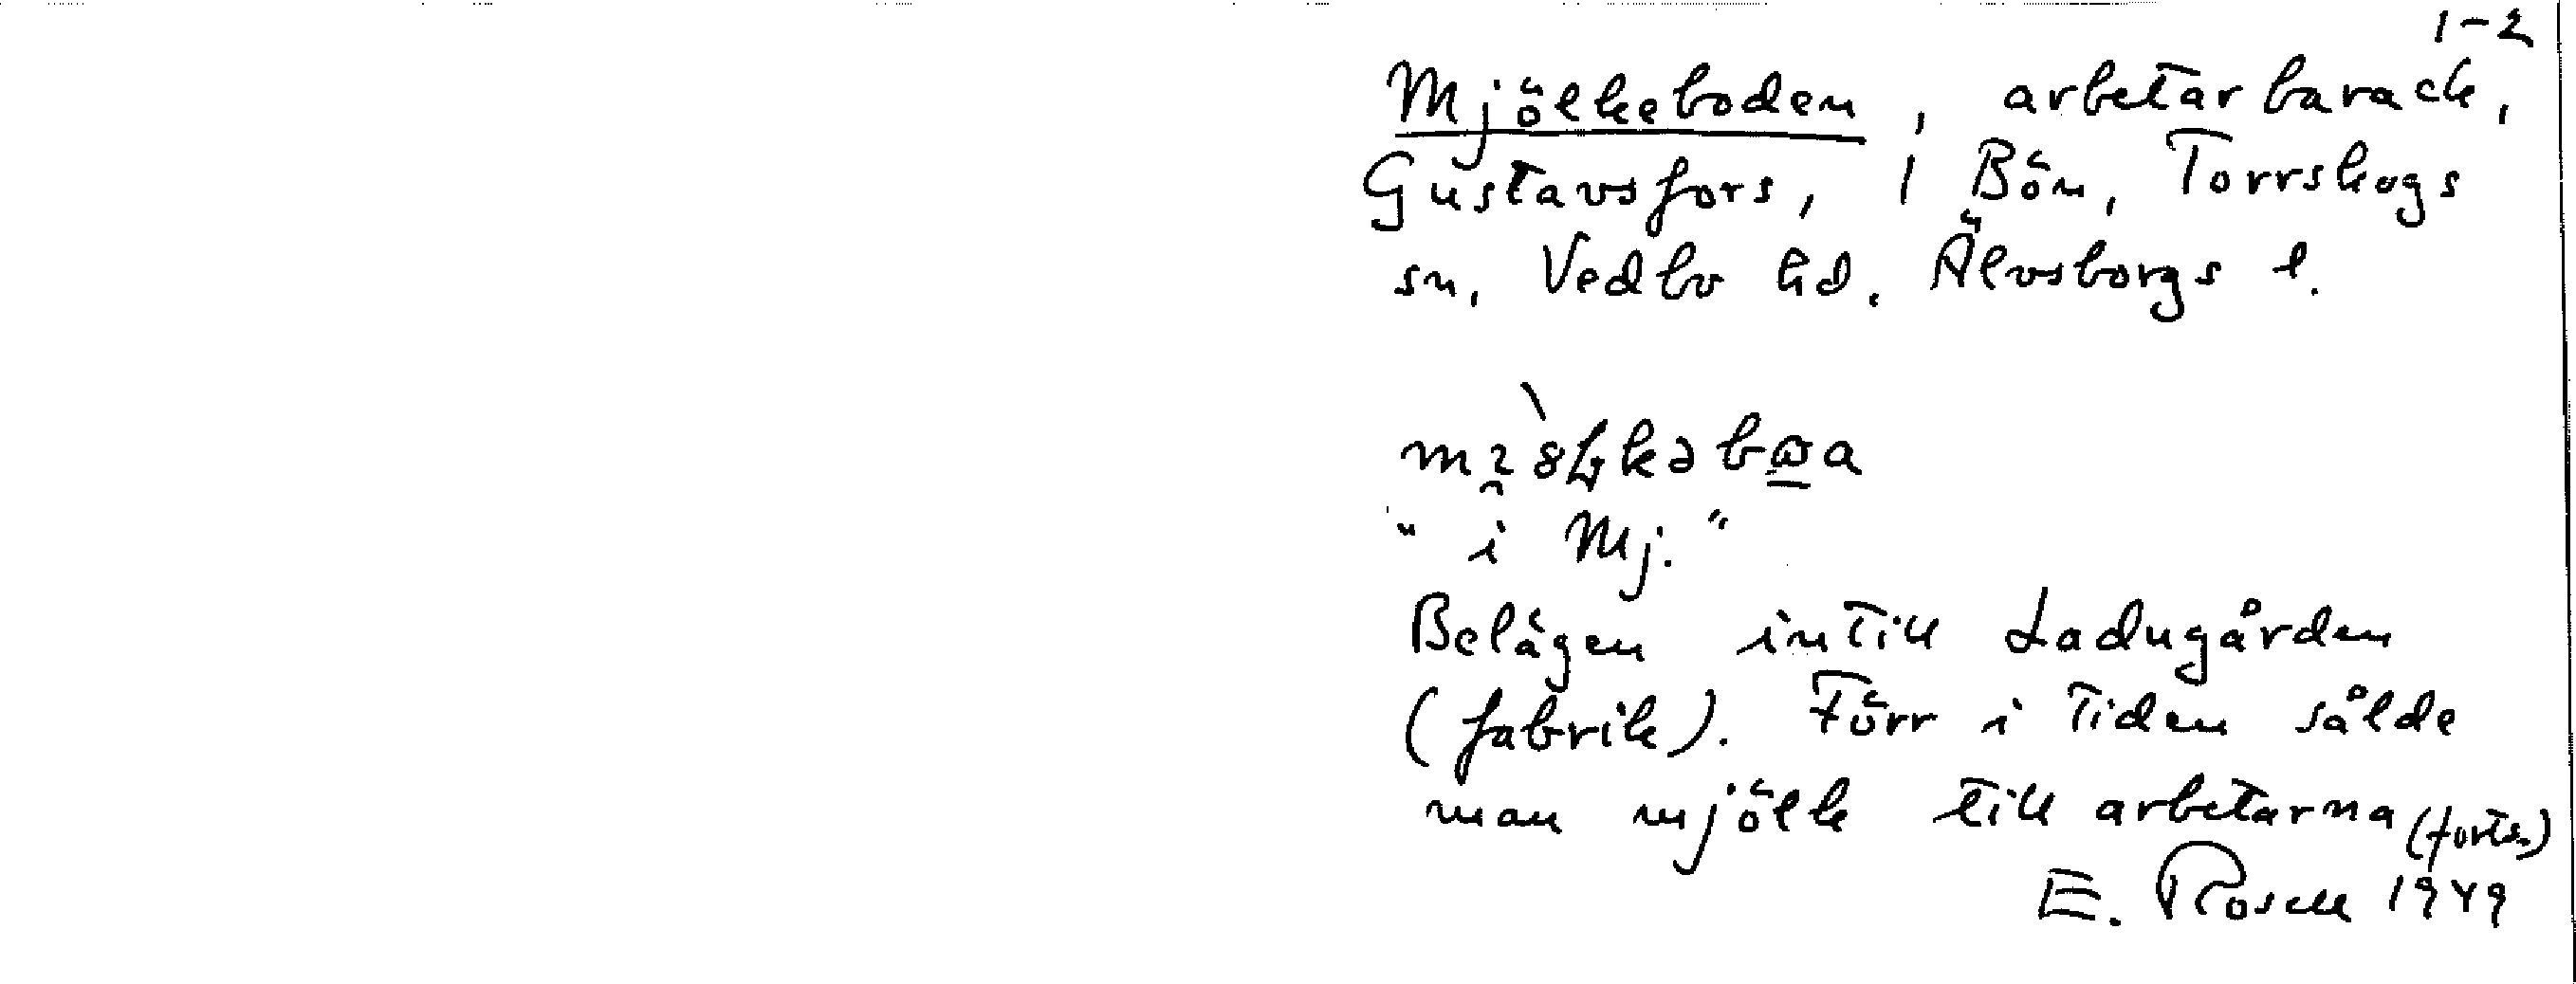 1-2
Mjölkeboden, arbetarbarack,
Gustavsfors, 1 Bön, Torrskogs
sn, Vedbo hd. Älvsborgs l.
"i Mj."
Belägen intill Ladugården
(fabrik). Förr i tiden sålde
man mjölk till arbetarna (forts.)
E. Rosell 1949